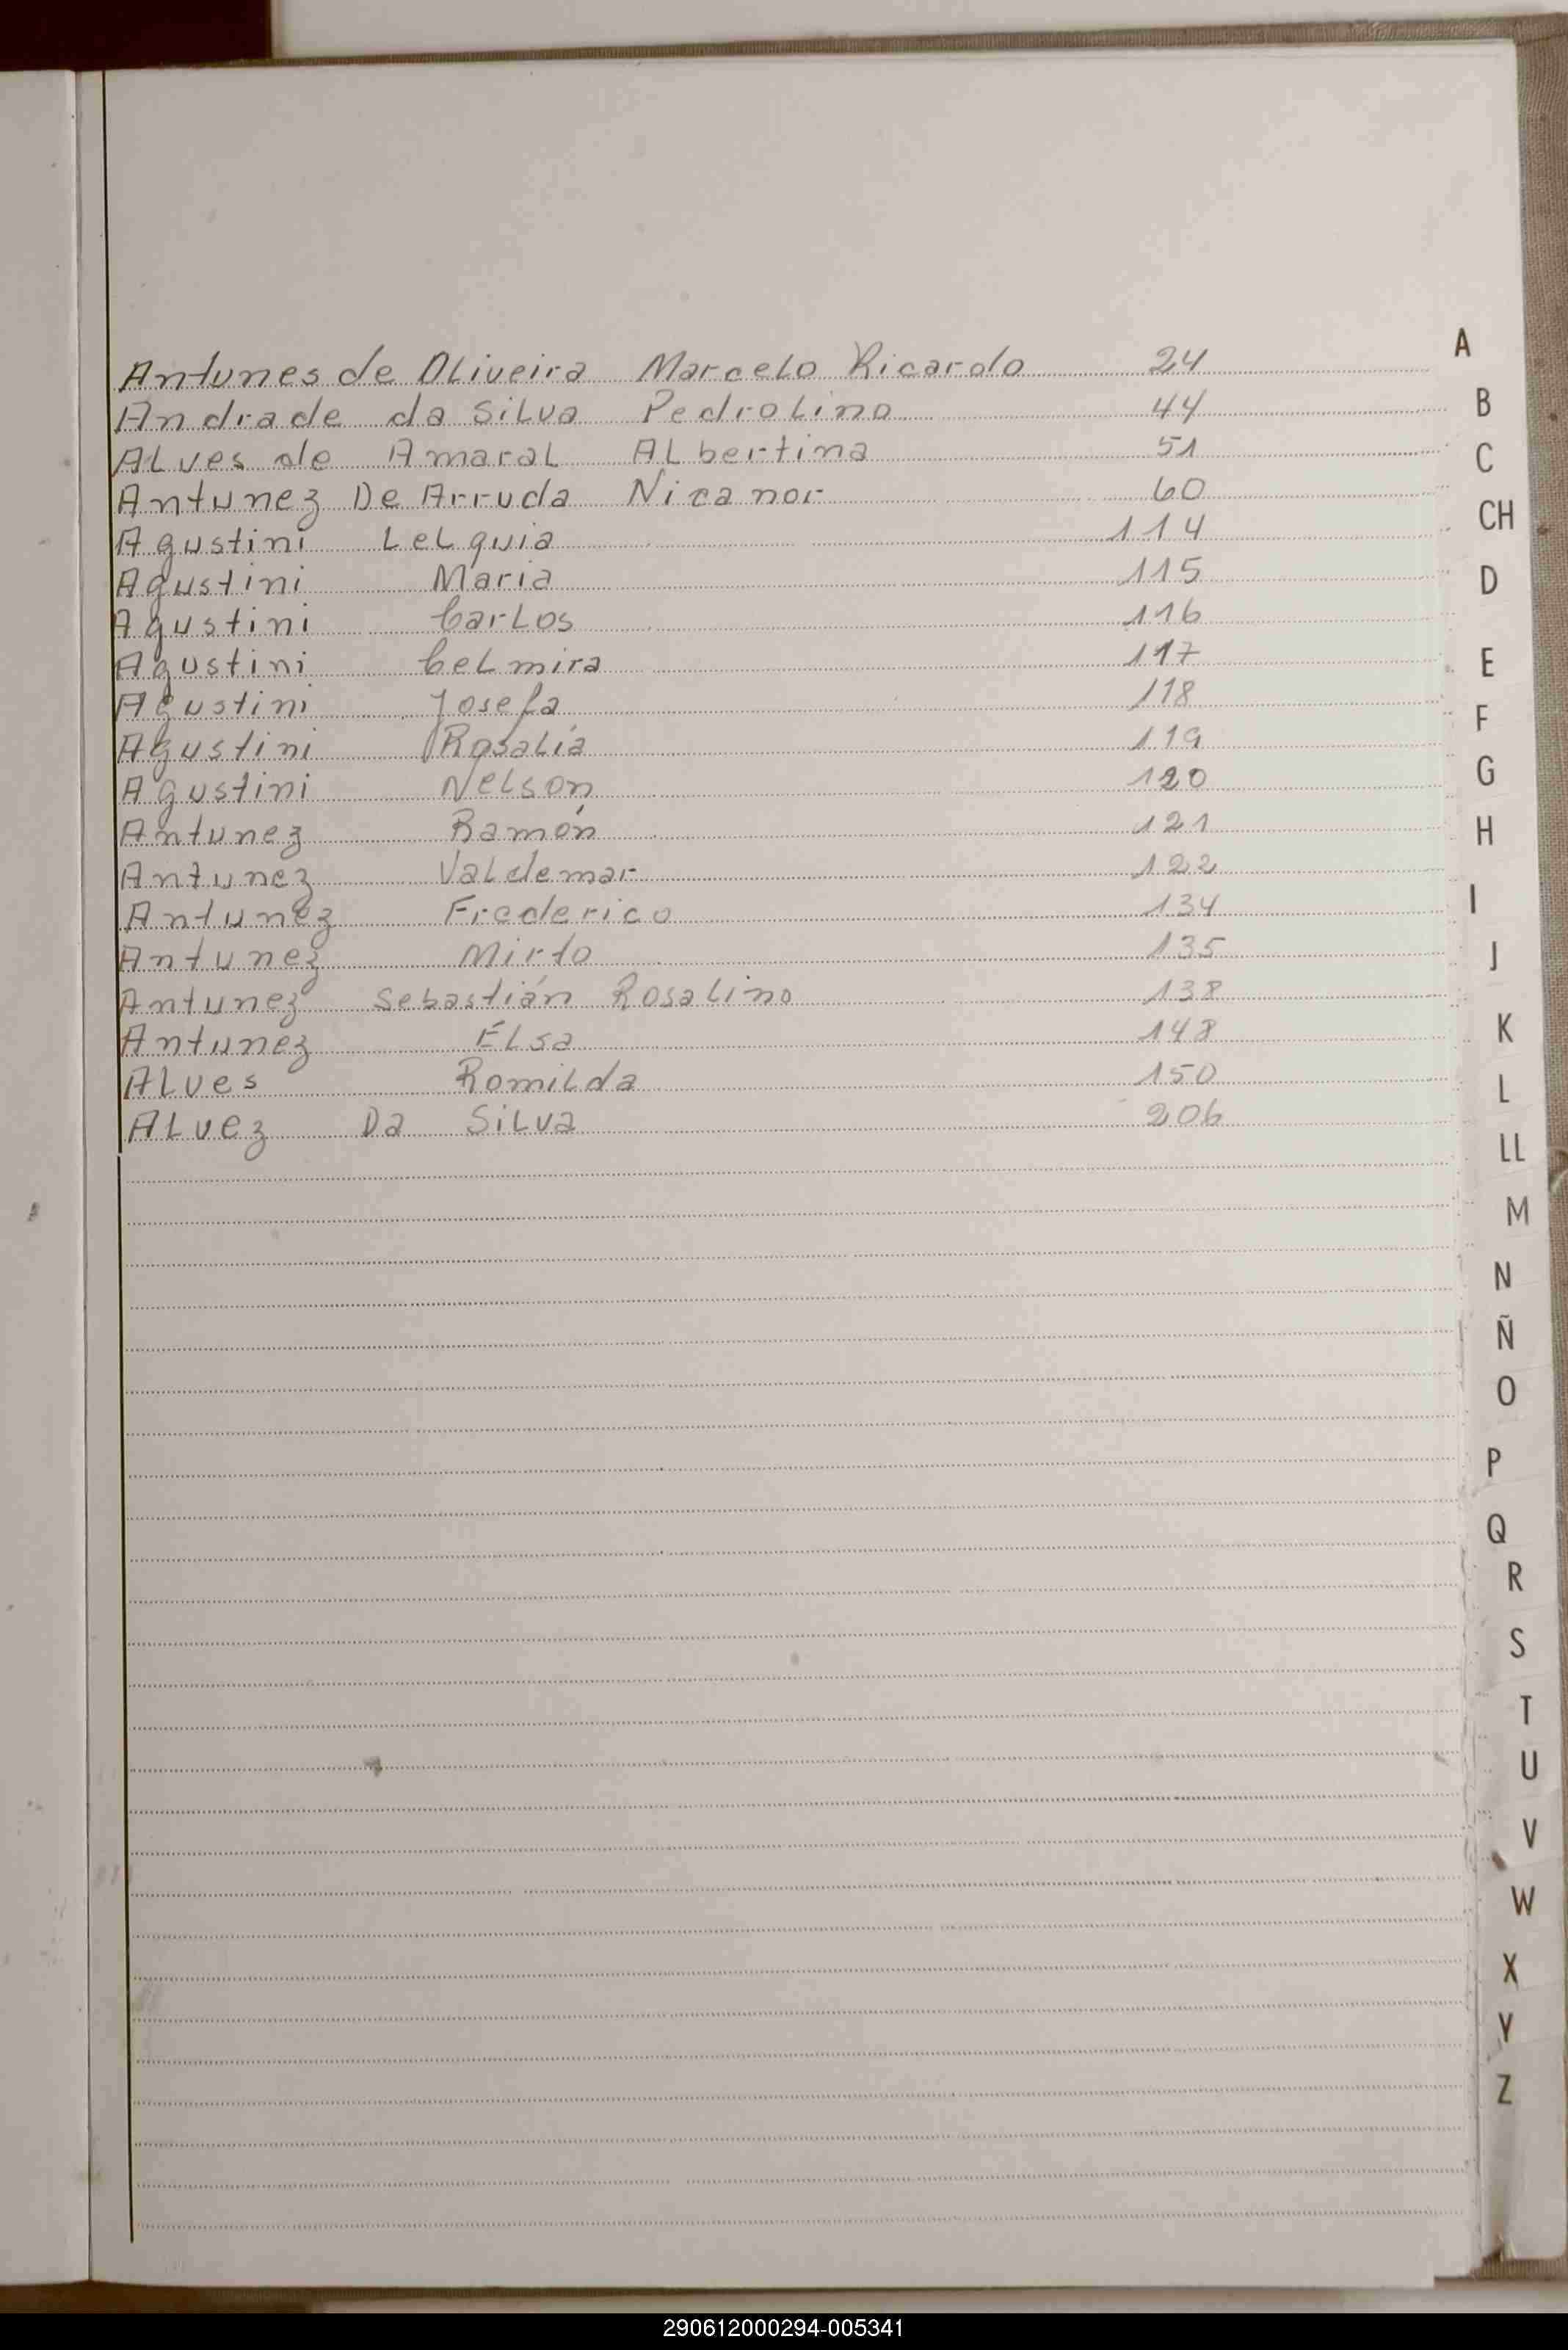 Antunes de Oliveira Marcelo Ricardo 24
Andrade da Silva Pedrolino 44
Alves de Amaral Albertina 51
Antunez De Arruda Nicanor 60
Agustini Lelquia 114
Agustini Maria 115
Agustini Carlos 116
Agustini Celmira 117
Agustini Josefa 118
Agustini Rosalía 119
Agustini Nelson 120
Antunez Ramón 121
Antunez Valdemar 122
Antunez Frederico 134
Antunez Mirto 135
Antunez Sebastián Rosalino 138
Antunez Élsa 148
Alves Romilda 150
Alvez Da Silva 206
A
B
C
CH
D
E
F
G
H
I
J
K
L
LL
M
N
Ñ
O
P
Q
R
S
T
U
V
W
X
Y
Z
290612000294-005341